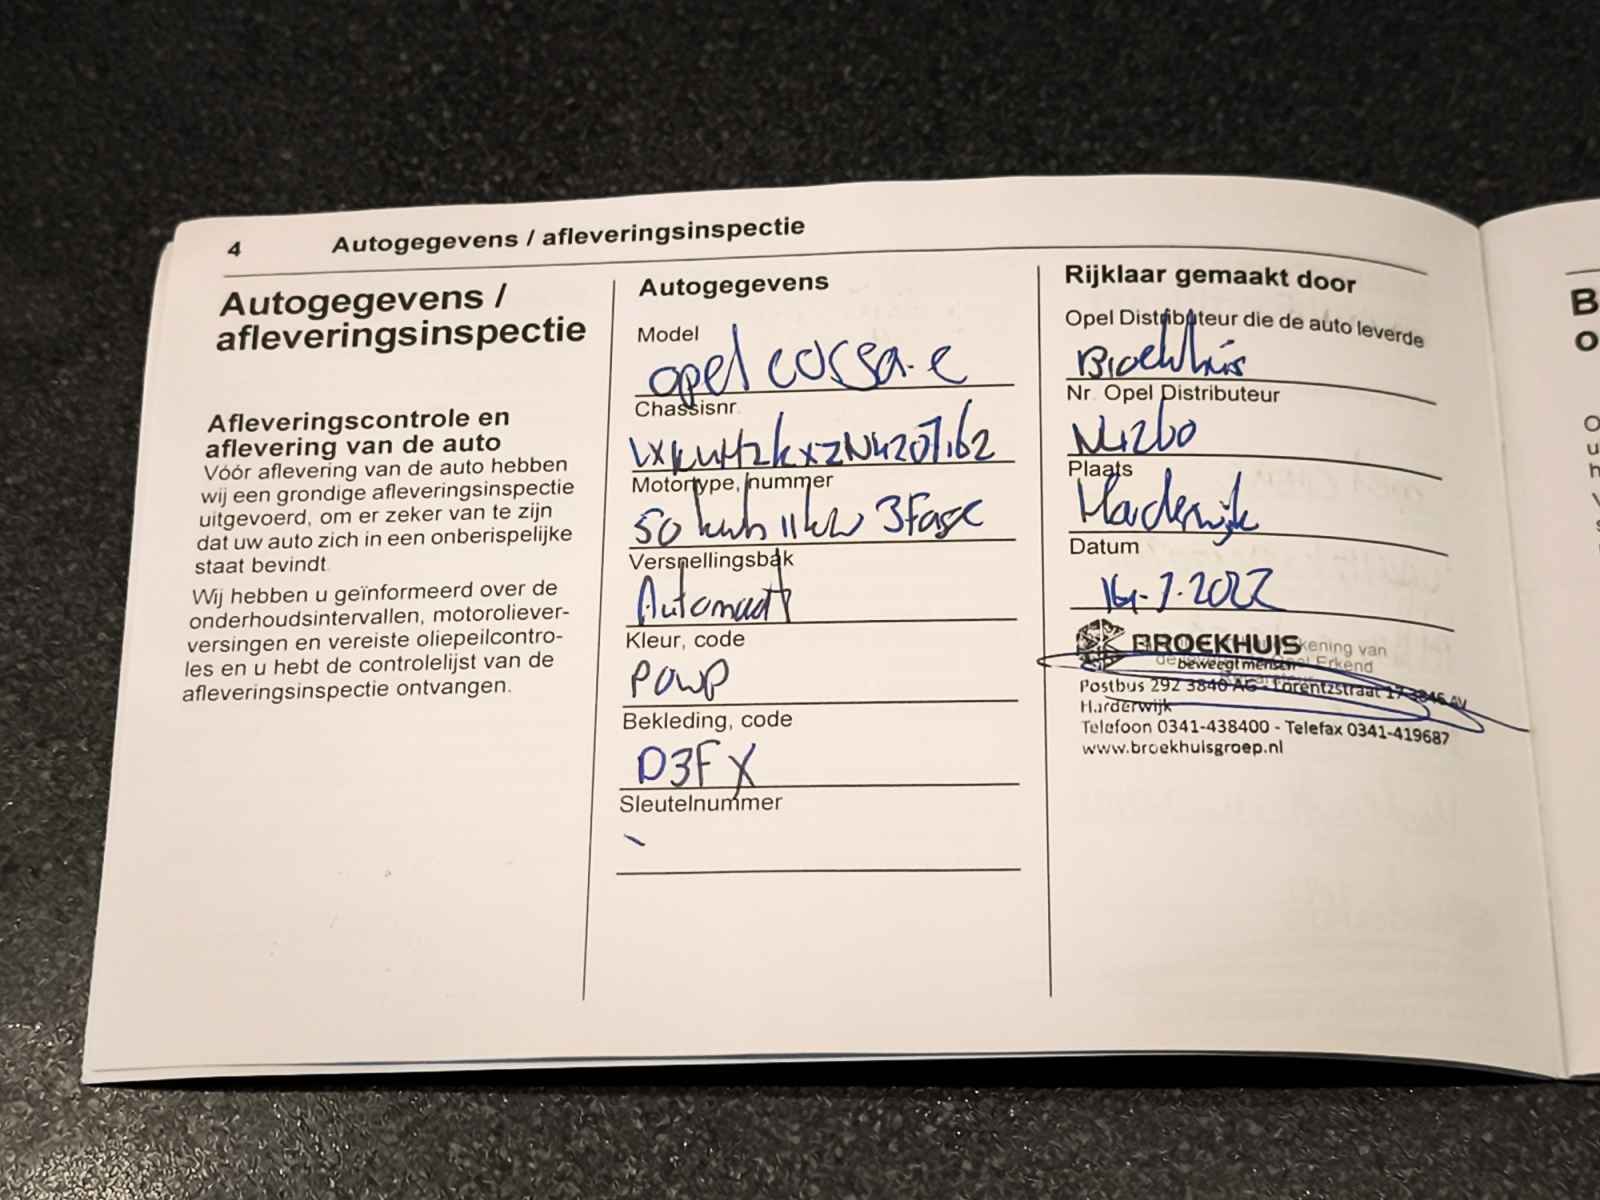 4 Autogegevens / afleveringsinspectie
Autogegevens /
afleveringsinspectie
Afleveringscontrole en
aflevering van de auto
Vóór aflevering van de auto hebben
wij een grondige afleveringsinspectie
uitgevoerd, om er zeker van te zijn
dat uw auto zich in een onberispelijke
staat bevindt.
Wij hebben u geïnformeerd over de
onderhoudsintervallen, motoroliever-
versingen en vereiste oliepeilcontro-
les en u hebt de controlelijst van de
afleveringsinspectie ontvangen.
Autogegevens
Model
Opel corsa-e
Chassisnr.
Motortype, nummer
50 kwh 11kw 3Fase
Versnellingsbak
Automaat
Kleur, code
POWP
Bekleding, code
D3FX
Sleutelnummer
Rijklaar gemaakt door
Opel Distributeur die de auto leverde
Broekhuis
Nr. Opel Distributeur
Plaats
Harderwijk
Datum
2022
BROEKHUIS
kening van
beweegt mensen
Erkend
Postbus 292 3840 AG - Lorentzstraat 17 3846 AV
Harderwijk
Telefoon 0341-438400 - Telefax 0341-419687
www.broekhuisgroep.nl
B
o